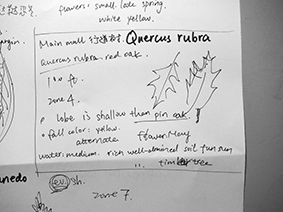 flowers: small. late spring.
white yellow.
Main mall 行道树. Quercus rubra
quercus rubra-red oak.
100 ft.
zone 4.
• lobe is shallow than pin oak.
• fall color: yellow.
alternate
water: medium. rich well-drained soil full sun
timber tree
sh.
zone 7.